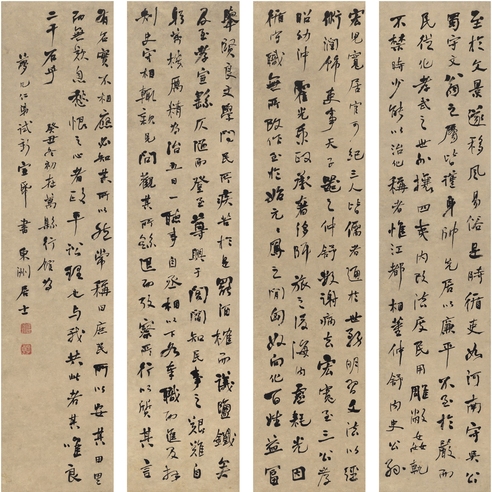 文景遂移風易俗是時吏如河南守吳公
蜀守文翁之屬皆謹身帥先居以廉平不至於嚴而
民從化孝武之世外攘四夷內改法度民用雕敝姦軌
不禁時少能以治化稱者惟江都相董仲舒內史公孫
宏兒寬居官可紀三人皆儒者通於世務明習文法以經
術潤飾吏事天子器之仲舒數謝病去宏寬至三公孝
昭幼沖霍光秉政承奢侈師旅之後海內虛耗光因
循守職無所改作至於始元元鳳之間匈奴向化百姓益富
舉賢良文學問民所疾苦於是罷酒榷而議鹽鐵矣
及至孝宣繇仄陋而登至尊興于閭閻知民事之艱難自
躬萬機厲精為治五日一聽事自丞相以下各奉職而進及拜
刺史守相輒親見問觀其所繇退而考察所行以質其言
有名實不相應必知其所以然常稱曰庶民所以安其田里
而無歎息愁恨之心者政平訟理也與我共此者其唯良
二千石乎 癸丑初在萬縣行館為
夢九仁弟試新宣筆書 東洲居士